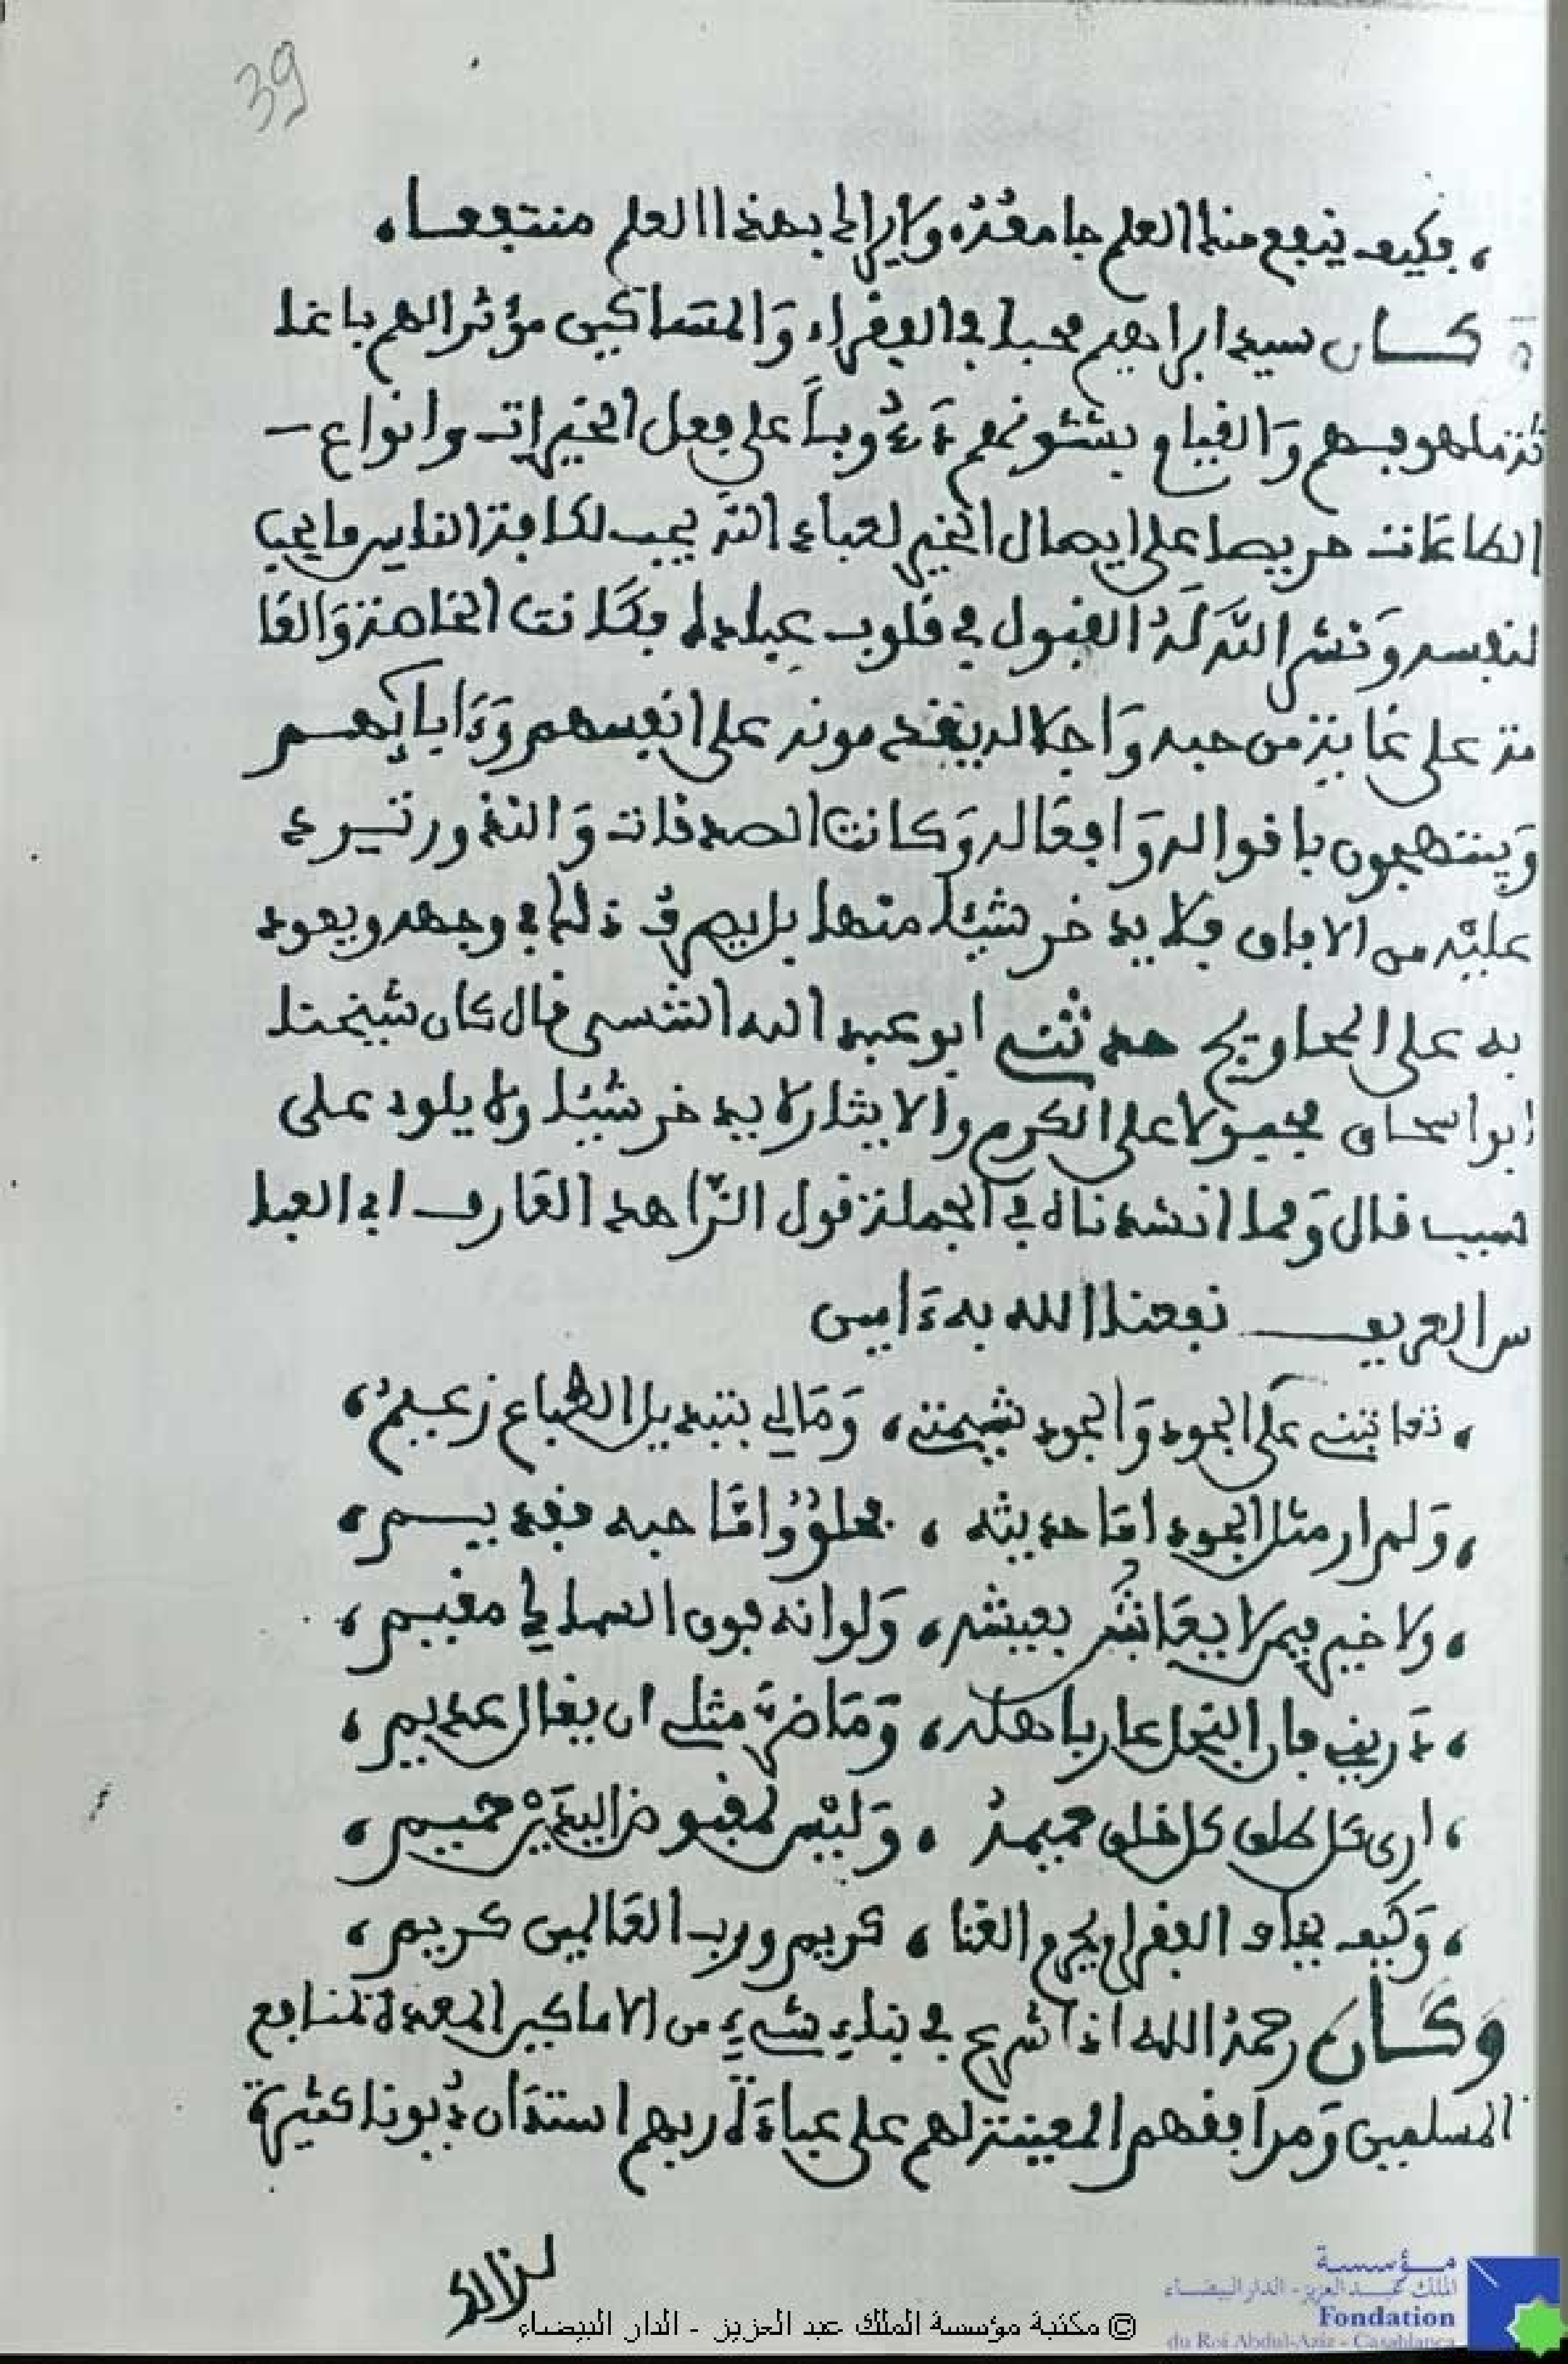 39
، فكيف ينفع هذا العلم جامعه ولا يرا لي بهذا العلم منتفعا،
كان سيد ابراهيم محبا في الفقراء وَالمساكين مؤثرا لهم باغا
ثة ملهوفهم وَالقيام بشئونهم دَءُوباً على فعل الخيرات وانواع
الطاعات حريصا على ايصال الخير لعباد الله يحب لكافة الناس ما يحب
لنفسه وَنشر اللّه لَهُ القبول في قلوب عباده فكانت الخاصة وَالعَا
مة على غاية من حبه وَاجلاله يقدمونه على انفسهم وَءَابايهم
وَينتهجون باقواله وَافعاله وَكانت الصدقات وَالنذور تسرد
عليْه من الافاق فلا يدخر شيئا منها بل يصرف ذلك في وجهه ويعود
به على المحاويج حدثني ابو عبد الله التنسي قال كان شيخنا
ابو اسحاق مجبولا على الكرم والايثار لا يدخر شيئا ولا يلود على
سبب قال وَمما انشدناه في الجملة قول الزّاهد العَارف ابي العبا
س العريف نفعنا الله به ءَامين
، تعاتبني عَلى الجود وَالجود شيمتي، وَمَالي بتبديل الطباع زعيمُ،
، وَلم ار مثل الجود امَا حديثه ، فحلوٌ وَامّا حبه فقديم،
، ولا خير فيمن لا يعَاش بعيشه، وَلو انه فوق السماك مقيم،
، دَريني فان البخل عار باهله، وَمَا ضرّ مثلي ان يقال عديم،
، ارى كل طلق كل خلق حميمهُ ، وَليْس لمقبوض اليدَيْن حميم،
، وَكيف يخاف الفقر او يحرم الغنا ، كريم ورب العَالمين كريم،
وَكَان رحمهُ الله اذا شرع في بناء شيء من الاماكن المعدة لمنافع
المسلمين وَمرافقهم المعينة لهم على عبادة ربهم استدَان دُيونا كثيرة
لذلك
© مكتبة مؤسسة الملك عبد العزيز - الدار البيضاء
مؤسسة
الملك عبد العزيز - الدار البيضاء
Fondation
du Roi Abdul-Aziz - Casablanca